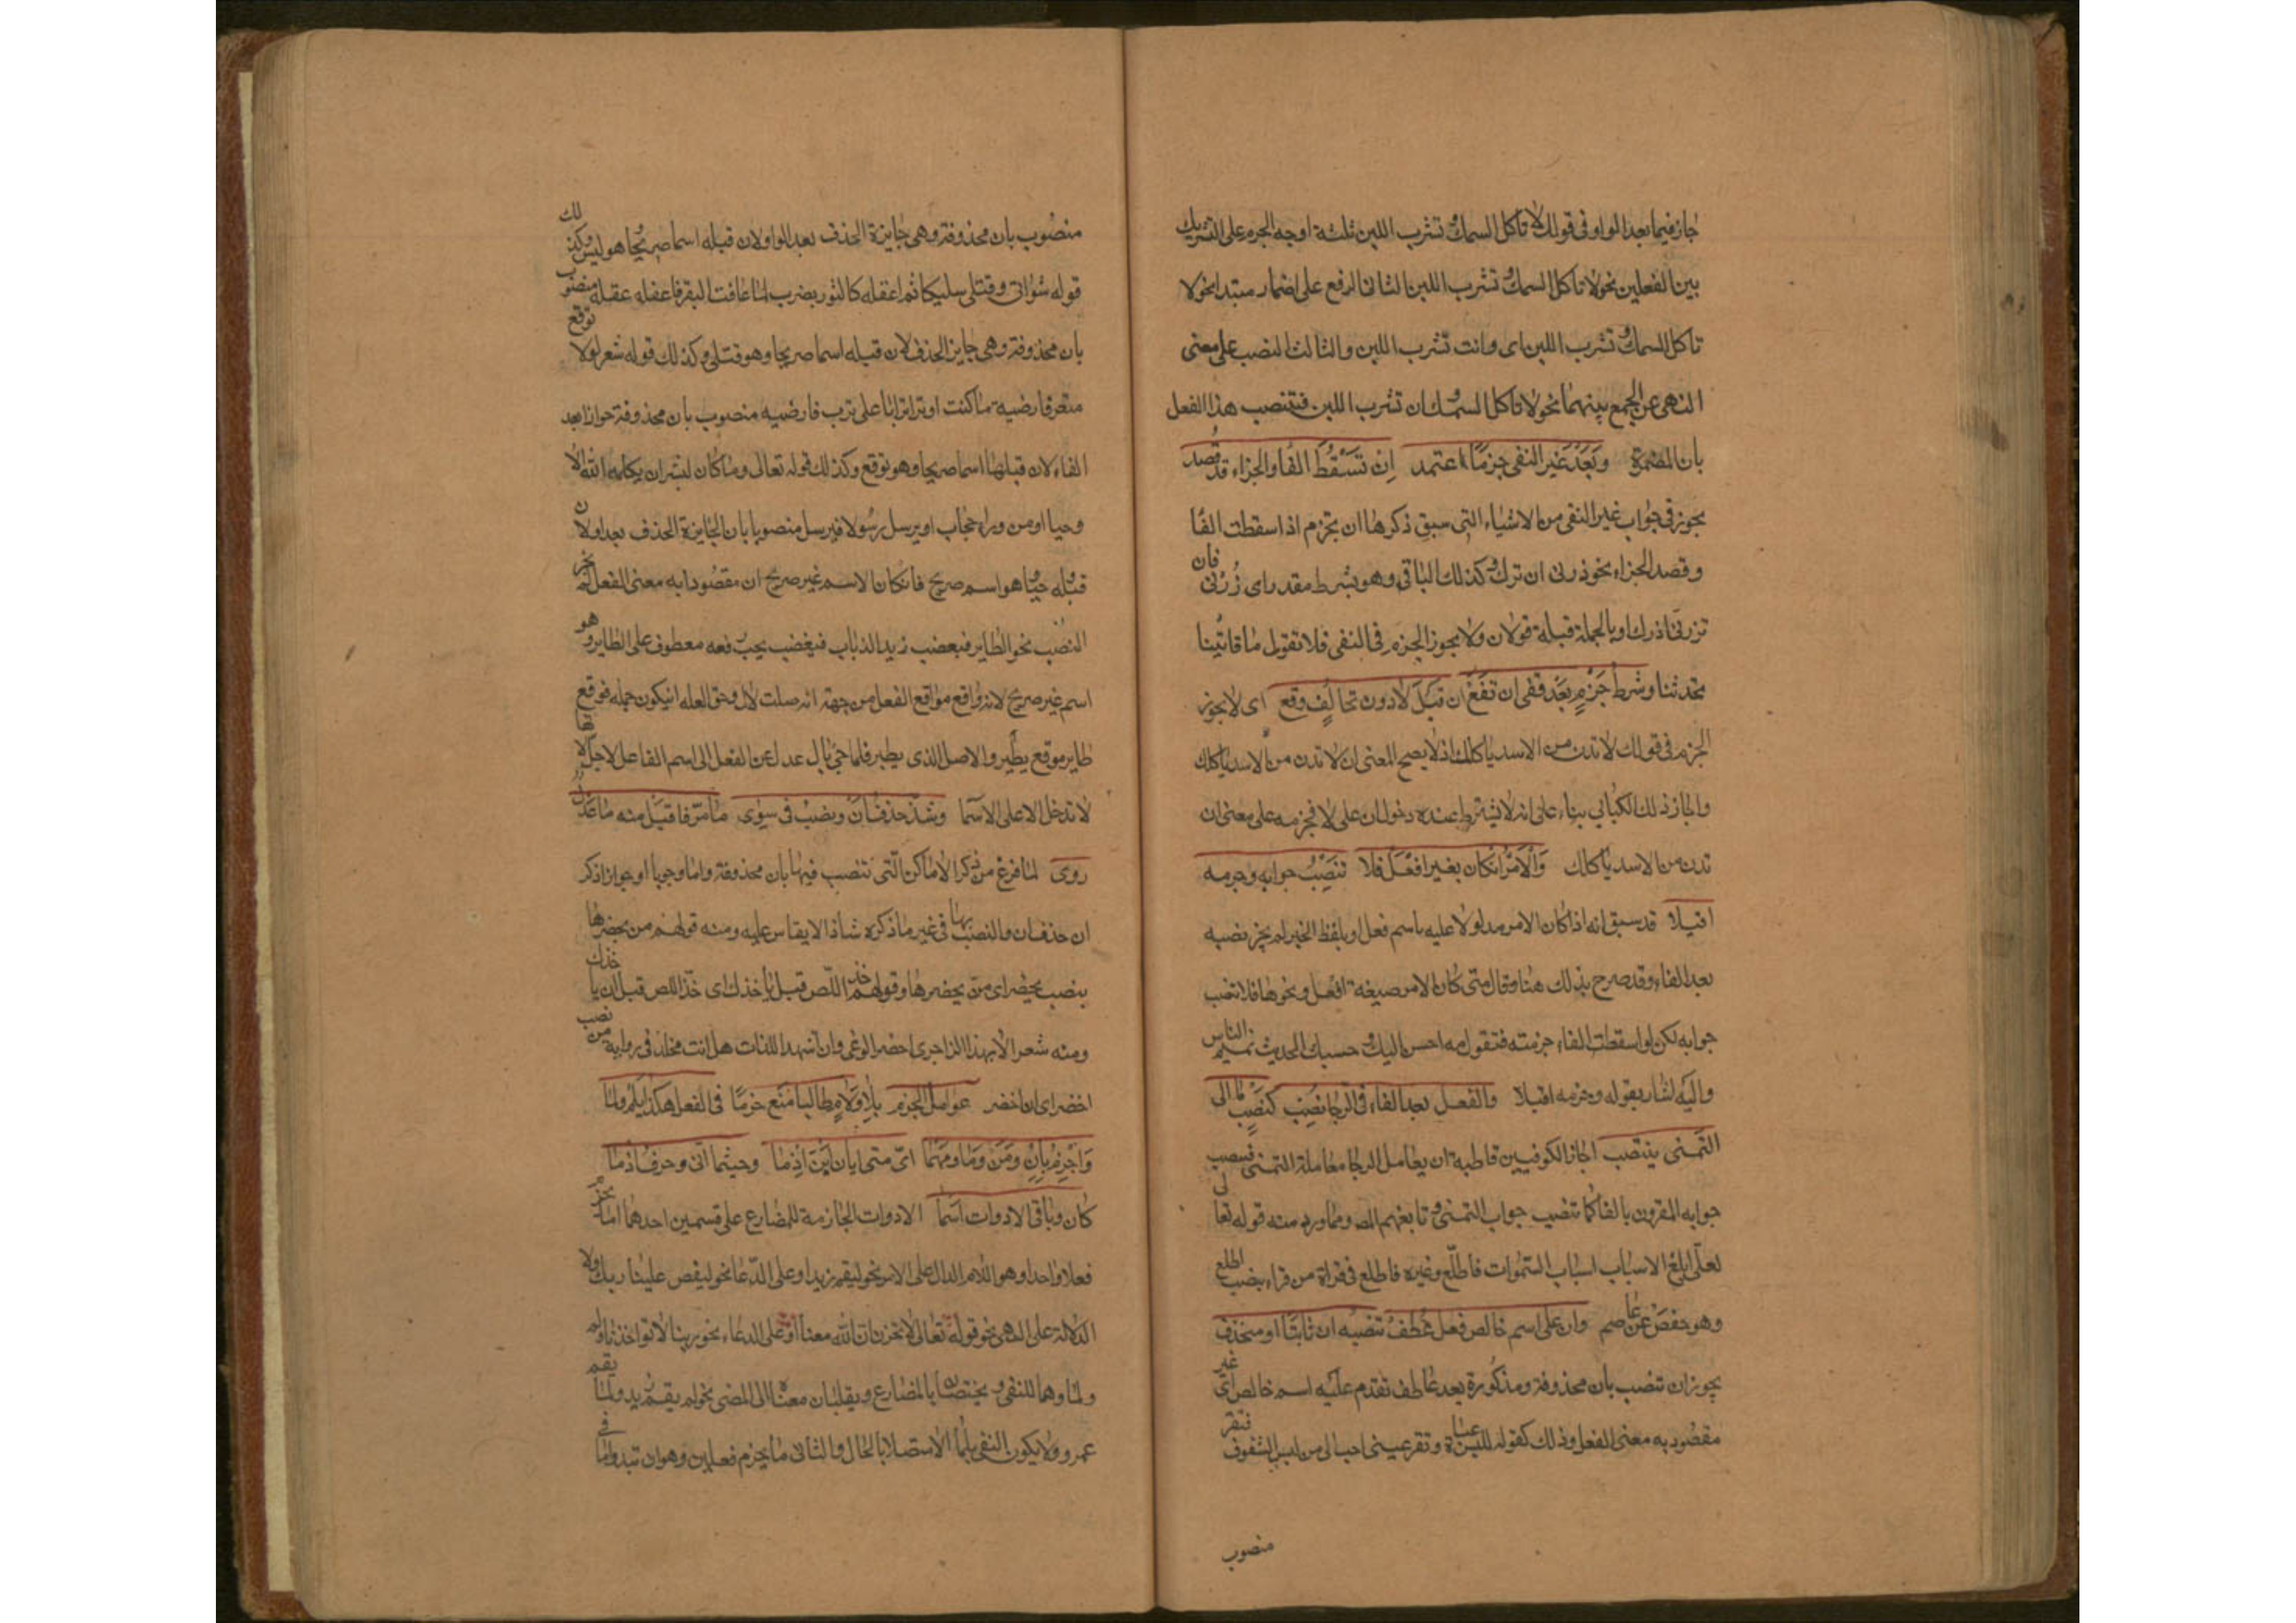 جاز فيما بعد الواو فى قولك لا تاكل السمك و تشرب اللبن ثلثة اوجه الجزم على التشريك
بين الفعلين نحو لا تاكل السمك و تشرب اللبن الثانى الرفع على اضمار مبتدا نحو لا
تاكل السمك و تشرب اللبن اى وانت تشرب اللبن والثالث النصب على معنى
النهى عن الجمع بينهما نحو لا تاكل السمك و ان تشرب اللبن فتنصب هذا الفعل
بان المضمرة وبعد غير النفى جزما اعتمد ان تسقط الفا والجزاء قد قصد
يجوز فى جواب غير النفى من الاشياء التى سبق ذكرها ان تجزم اذا اسقطت الفا
وقصد الجزاء نحو زرنى ازرك و كذلك الباقى وهو بشرط مقدر اى زرنى فان
تزرنى ازرك او بالجملة قبله قولان ولا يجوز الجزم فى النفى فلا تقول ما تاتينا
تحدثنا وشرط جزم بعد نهى ان تضع ان قبل لا دون تخالف وقع اى لا يجوز
الجزم فى قولك لا تدن من الاسد ياكلك اذ لا يصح المعنى ان لا تدن من الاسد ياكلك
واجاز ذلك الكسائي بناء على انه لا يشترط عنده دخول ان على لا فجزمه على معنى ان
تدن من الاسد ياكلك والامر ان كان بغير افعل فلا تنصب جوابه وجزمه
اقبلا قد سبق انه اذا كان الامر مدلولا عليه باسم فعل او بلفظ الخبر لم يجز نصبه
بعد الفاء وقد صرح بذلك هنا وقال متى كان الامر صيغة افعل ونحوها فلا تنصب
جوابه لكن لو اسقطت الفاء جزمته فتقول صه احسن اليك و حسبك الحديث ينم الناس
واليه اشار بقوله وجزمه اقبلا والفعل بعد الفاء فى الرجا نصب كنصب ما الى
التمنى ينتصب اجاز الكوفيين قاطبة ان يعامل الرجا معاملة التمنى فينصب
جوابه المقرون بالفا كما تنصب جواب التمنى و تابعهم المص ومما ورد منه قوله تعالى
لعلى ابلغ الاسباب اسباب السموات فاطلع وغيره فاطلع فى قراة من قراء بنصب اطلع
وهو حفص عن عاصم وان على اسم خالص فعل عطف تنصبه ان ثابتا او منحذف
يجوز ان تنصب بان محذوفة ومذكورة بعد عاطف تقدم عليه اسم خالص اى غير
مقصود به معنى الفعل وذلك كقوله للبس عباة و تقر عينى احب الى من لبس الشفوف فتقر
منصوب
منصوب بان محذوفة وهى جايزة الحذف بعد الواو لان قبله اسما صريحا هو لبس وكذلك
قوله شعر انى وقتلى سليكا ثم اعقله كالثور يضرب لما عافت البقر فاعقله عقله منصوب
بان محذوفة وهى جايز الحذف لان قبله اسما صريحا وهو قتلى وكذلك قوله شعر لولا توقع
معتر فارضيه ما كنت اوثر اترابا على ترب فارضيه منصوب بان محذوفة جوازا بعد
الفاء لان قبلها اسما صريحا وهو توقع وكذلك قوله تعالى وما كان لبشر ان يكلمه الله الا
وحيا او من وراء حجاب او يرسل رسولا فيرسل منصوبا بان الجايزة الحذف بعد او لان
قبله وحيا و هو اسم صريح فان كان الاسم غير صريح اى مقصودا به معنى الفعل لم يجز
النصب نحو الطاير فيغضب زيد الذباب فيغضب يجب رفعه معطوف على الطاير وهو
اسم غير صريح لانه واقع مواقع الفعل من جهة انه صلت لال وحق الصله ان يكون جمله فوقع
طاير موقع يطير والاصل الذى يطير فلما جئ بال عدل عن الفعل الى اسم الفاعل لاجل ال لانها
لا تدخل الا على الاسما وشذ حذف ان ونصب فى سوى ما مر فاقبل منه ما عدل
روى لما فرغ من ذكر الاماكن التى تنصب فيها بان محذوفة واما وجوبا او جوازا ذكر
ان حذف ان والنصب بها فى غير ما ذكره شاذ لا يقاس عليه ومنه قولهم من يحضرها
بنصب يحضر اى من يحضرها وقولهم خذ اللص قبل ياخذك اى خذ اللص قبل ان ياخذك
ومنه شعر الا ايهذا الزاجرى احضر الوغى وان اشهد اللذات هل انت مخلد فى رواية من نصب
احضر اى ان احضر عوامل الجزم بلا ولام طالبا منع جزما فى الفعل هكذا بلم ولما
واجزم بان ومن وما ومهما اى متى ايان اين اذما وحيثما انى وحرف اذما
كان وباقى الادوات اسما الادوات الجازمة للمضارع على قسمين احدهما ما يجزم
فعلا واحدا وهو اللام الدال على الامر نحو ليقم زيد او على الدعا نحو ليقض علينا ربك ولا
الدلالة على النهى نحو قوله تعالى لا تحزن ان الله معنا او على الدعاء نحو ربنا لا تواخذنا ولم
ولما وهما للنفى و يختصان بالمضارع ويقلبان معناه الى المضى نحو لم يقم زيد ولما يقم
عمرو ولا يكون النفى بلما الا متصلا بالحال والثانى ما يجزم فعلين وهو ان تبدوا ما فى